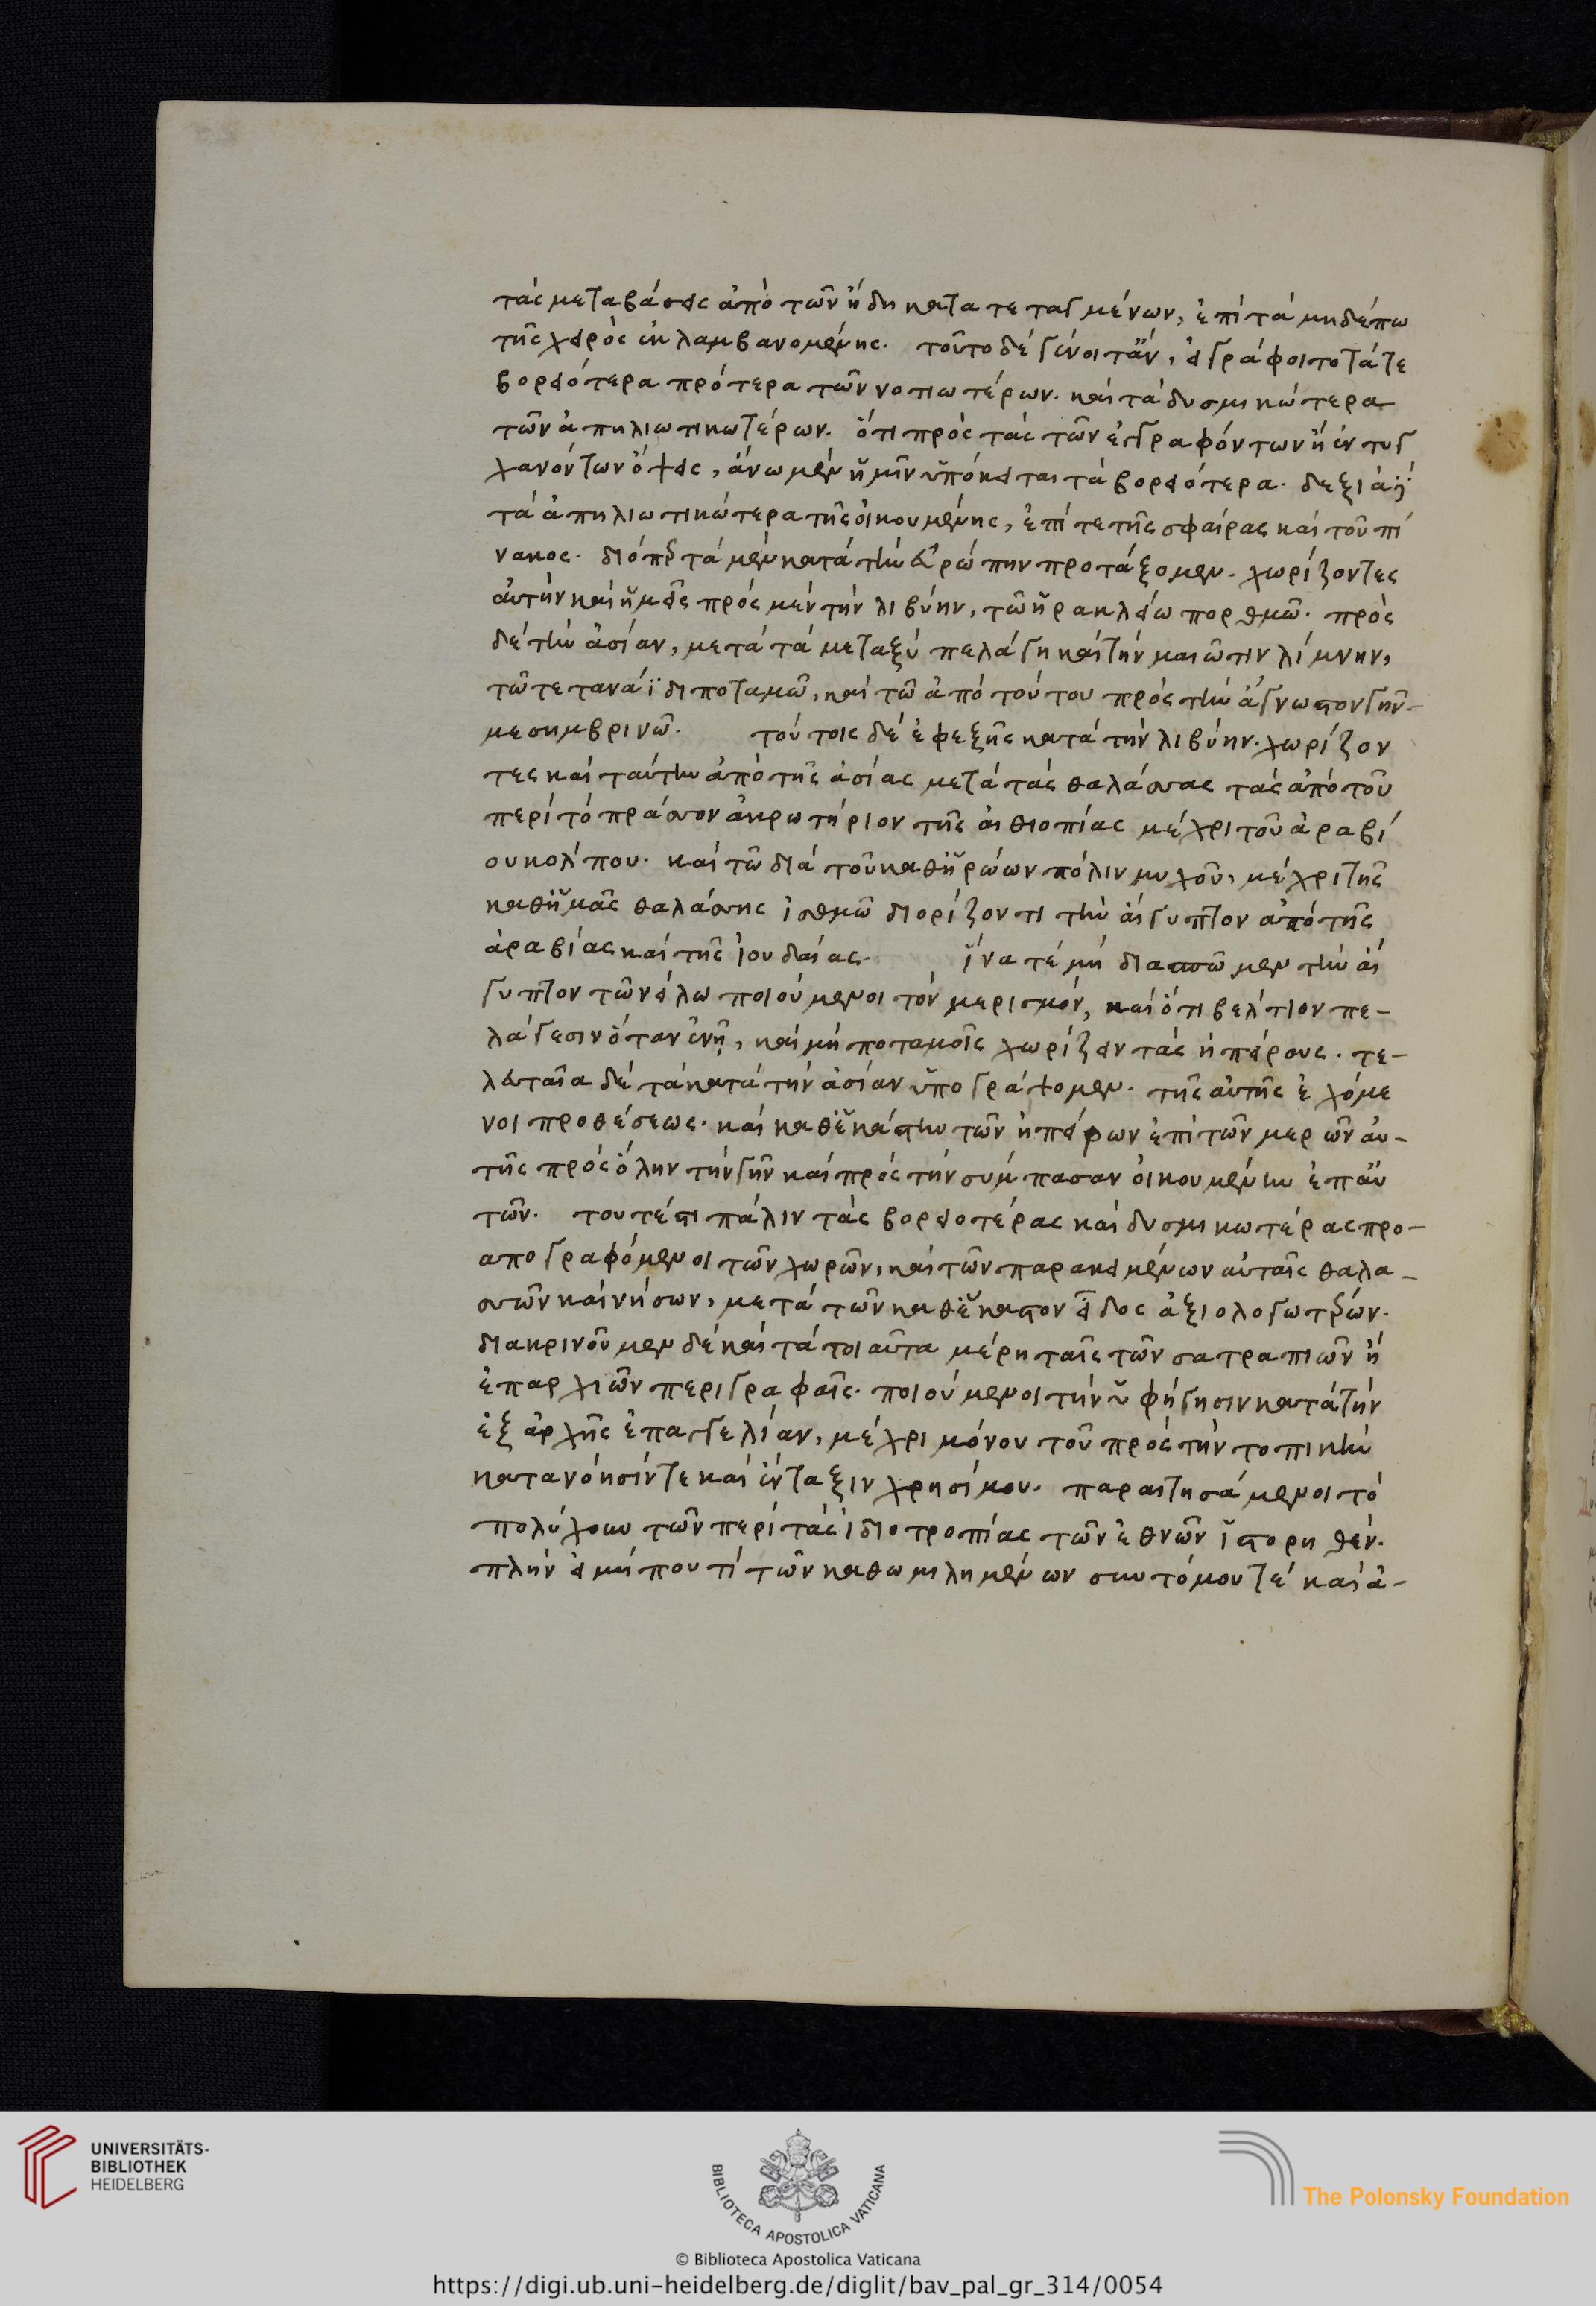 τὰς μεταβάσεις ἀπὸ τῶν ἤδη κατατεταγμένων, ἐπὶ τὰ μηδέπω
τῆς χειρὸς ἐκλαμβανομένης. τοῦτο δὲ γένοιτ' ἄν, εἰ γράφοιτο τά τε
βορειότερα πρότερα τῶν νοτιωτέρων. καὶ τὰ δυσμικώτερα
τῶν ἀπηλιωτικωτέρων. ὅτι πρὸς τὰς τῶν ἐγγραφόντων ἢ ἐντυγ
χανόντων ὄψεις, ἄνω μὲν ἡμῖν ὑπόκειται τὰ βορειότερα. δεξιὰ δὲ
τὰ ἀπηλιωτικώτερα τῆς οἰκουμένης, ἐπί τε τῆς σφαίρας καὶ τοῦ πί
νακος. διόπερ τὰ μὲν κατὰ τὴν εὐρώπην προτάξομεν. χωρίζοντες
αὐτὴν καὶ ἡμεῖς πρὸς μὲν τὴν λιβύην, τῶ ἡρακλείω πορθμῶ. πρὸς
δὲ τὴν ἀσίαν, μετὰ τὰ μεταξὺ πελάγη καὶ τὴν μαιῶτιν λίμνην,
τῶ τε τανάϊδι ποταμῶ, καὶ τῶ ἀπὸ τούτου πρὸς τὴν ἄγνωστον γῆν
μεσημβρινῶ. τούτοις δὲ ἐφεξῆς κατὰ τὴν λιβύην. χωρίζον
τες καὶ ταύτην ἀπὸ τῆς ἀσίας μετὰ τὰς θαλάσσας τὰς ἀπὸ τοῦ
περὶ τὸ πράσσον ἀκρωτήριον τῆς αἰθιοπίας μέχρι τοῦ ἀραβί
ου κόλπου. καὶ τῶ διὰ τοῦ καθ' ἡρώων πόλιν μυχοῦ, μέχρι τῆς
καθ' ἡμᾶς θαλάσσης ἰσθμῶ διορίζοντι τὴν αἴγυπτον ἀπὸ τῆς
ἀραβίας καὶ τῆς ἰουδαίας. ἵνα τὲ μὴ διασπῶμεν τὴν αἴ
γυπτον τῶ νείλω ποιούμενοι τὸν μερισμόν, καὶ ὅτι βέλτιον πε-
λάγεσιν ὅταν ἐνῇ, καὶ μὴ ποταμοῖς χωρίζειν τὰς ἠπείρους. τε-
λευταῖα δὲ τὰ κατὰ τὴν ἀσίαν ὑπογράψομεν. τῆς αὐτῆς ἐχόμε
νοι προθέσεως. καὶ καθ' ἑκάστην τῶν ἠπείρων ἐπὶ τῶν μερῶν αὐ-
τῆς πρὸς ὅλην τὴν γῆν καὶ πρὸς τὴν σύμπασαν οἰκουμένην ἐπ' αὐ
τῶν. τουτέστι πάλιν τὰς βορειοτέρας καὶ δυσμικωτέρας προ-
απογραφόμενοι τῶν χωρῶν, καὶ τῶν παρακειμένων αὐταῖς θαλα-
σσῶν καὶ νήσων, μετὰ τῶν καθ' ἕκαστον εἶδος ἀξιολογωτέρων.
διακρινοῦμεν δὲ καὶ τὰ τοιαῦτα μέρη ταῖς τῶν σατραπιῶν ἢ
ἐπαρχιῶν περιγραφαῖς. ποιούμενοι τὴν ὑφήγησιν κατὰ τὴν
ἐξ ἀρχῆς ἐπαγγελίαν, μέχρι μόνου τοῦ πρὸς τὴν τοπικὴν
κατανόησίν τε καὶ ἔνταξιν χρησίμου. παραιτησάμενοι τὸ
πολύχουν τῶν περὶ τὰς ἰδιοτροπίας τῶν ἐθνῶν ἱστορηθέν.
πλὴν εἰ μή που τί τῶν καθωμιλημένων συντόμου τὲ καὶ ἀ-
UNIVERSITÄTS-
BIBLIOTHEK
HEIDELBERG
BIBLIOTECA APOSTOLICA VATICANA
The Polonsky Foundation
© Biblioteca Apostolica Vaticana
https://digi.ub.uni-heidelberg.de/diglit/bav_pal_gr_314/0054